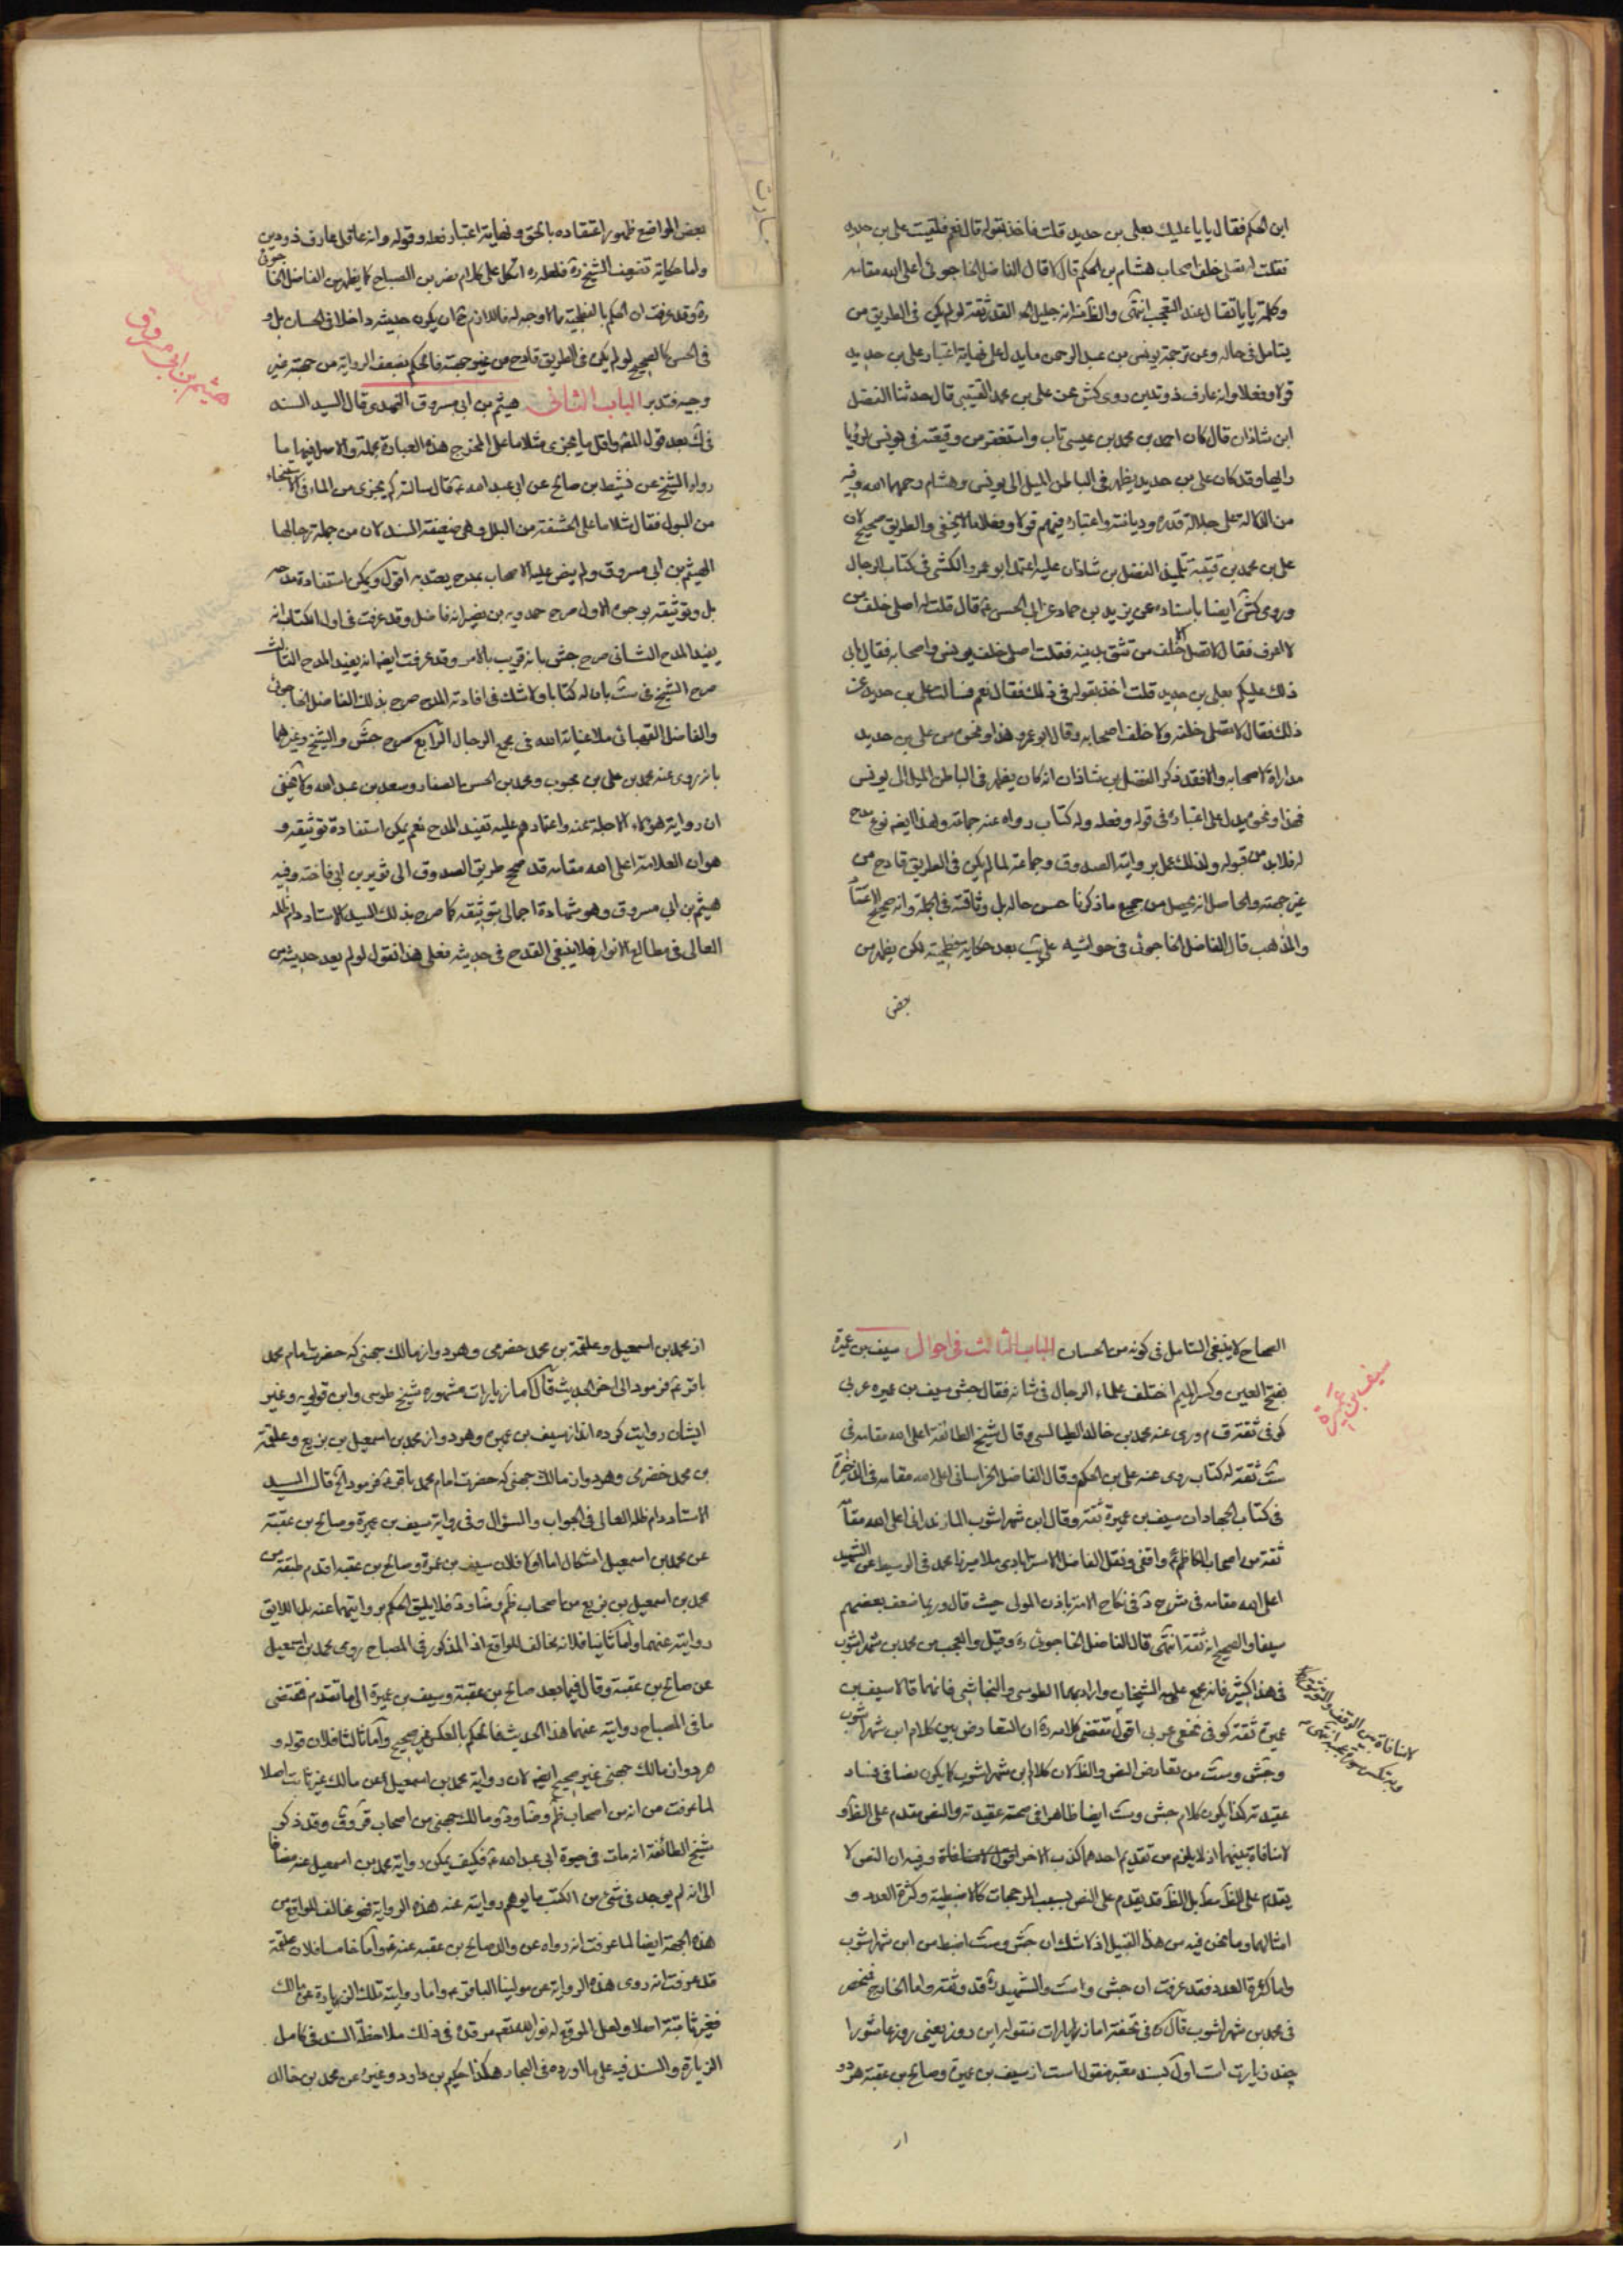 ابن الحكم فقال يا يا عليك بعلي بن حديد قلت فاخذ بقوله قال نعم فلقيت علي بن حديد
فقلت له نصلي خلف اصحاب هشام بن الحكم قال لا قال الفاضل الخاجوئي اعلى الله مقامه
وكلمة يا يا تقال عند التعجب انتهى والظ منه انه جليل القدر ثقة لو لم يكن في الطريق من
يتامل في حاله وعن ترجمة يونس بن عبد الرحمن ما يدل على نهاية اعتبار علي بن حديد
قولا وفعلا وانه عارف ذو تدين روى كش عن علي بن محمد القتيبي قال حدثنا الفضل
ابن شاذان قال كان احمد بن محمد بن عيسى تاب واستغفر من وقيعته في يونس لرؤيا
راها وقد كان علي بن حديد يظهر في الباطن الميل الى يونس وهشام رحمهما الله وفيه
من الدلالة على جلالة قدره وديانته واعتباره فيهم قولا وفعلا ما لا يخفى والطريق صحيح لان
علي بن محمد بن قتيبة تلميذ الفضل بن شاذان عليه اعتمد ابو عمرو الكشي في كتاب الرجال
وروى كش ايضا باسناده عن يزيد بن حماد عن ابي الحسن ع قال قلت له اصلي خلف من
لا اعرف فقال لا تصل الا خلف من تثق بدينه فقلت اصلي خلف يونس واصحابه فقال يابى
ذلك عليكم علي بن حديد قلت اخذ بقوله في ذلك فقال نعم فسالت علي بن حديد عن
ذلك فقال لا تصلي خلفه ولا خلف اصحابه وقال ابو عمرو هذا ونحوه من علي بن حديد
مداراة لاصحابه والا فقد ذكر الفضل بن شاذان انه كان يظهر في الباطن الميل الى يونس
فهذا ونحوه يدل على اعتباره في قوله وفعله وله كتاب رواه عنه جماعة ولهذا ايضه نوع مدح
له فلا بد من قبوله ولذلك عمل بروايته الصدوق وجماعة لما لم يكن في الطريق قادح من
غير جهته والحاصل انه يحصل من جميع ما ذكرنا حسن حاله بل وثاقته في الجملة وانه صحيح الاعتقاد
والمذهب قال الفاضل الخاجوئي في حواشيه على يب بعد حكاية فطحيته لكن يظهر من
بعض
بعض المواضع ظهور اعتقاده بالحق ونهاية اعتبار فعله وقوله وانه عاقل عارف ذو دين
واما حكاية تضعيف الشيخ ره فلعله ره اتكل على كلام نصر بن الصباح كما يظهر من الفاضل الخاجوئي
ره وقد عرفت ان الحكم بالفطحية مما لا وجه له فاللازم ح ان يكون حديثه داخلا في الحسان بل و
في الحسن كالصحيح لو لم يكن في الطريق قادح من غير جهته فالحكم بضعف الرواية من جهته غير
وجيه فتدبر الباب الثاني هيثم بن ابي مسروق النهدي قال السيد السند
هيثم بن ابي مسروق
في ك بعد قول المصنف واقل ما يجزي مثلا ما على المخرج هذه العبارة مجملة والاصل فيها ما
رواه الشيخ عن نشيط بن صالح عن ابي عبد الله ع قال سالته كم يجزي من الماء في الاستنجاء
من البول فقال مثلا ما على الحشفة من البلل وهي ضعيفة السند لان من جملة رجالها
الهيثم بن ابي مسروق ولم ينص عليه الاصحاب بمدح يعتد به اقول ويمكن استفادة مدحه
بل وتوثيقه بوجوه الاول صرح حمدويه بن نصير انه فاضل وقد عرفت في اول الكتاب انه
يفيد المدح الثاني صرح جش بانه قريب بالامر وقد عرفت ايضه انه يفيد المدح الثالث
صرح الشيخ في ست بان له كتابا ولا شك في افادته المدح صرح بذلك الفاضل الخاجوئي
والفاضل القهبائي ملا عناية الله في مجمع الرجال الرابع صرح جش والشيخ وغيرهما
بانه روى عنه محمد بن علي بن محبوب ومحمد بن الحسن الصفار وسعد بن عبد الله ولا يخفى
ان رواية هؤلاء الاجلة عنه واعتمادهم عليه تفيد المدح نعم يمكن استفادة توثيقه و
هو ان العلامة اعلى الله مقامه قد صحح طريق الصدوق الى ثوير بن ابي فاخته وفيه
هيثم بن ابي مسروق وهو شهادة اجمالي بتوثيقه كما صرح بذلك السيد الاستاد دام ظله
العالي في مطالع الانوار فلا ينبغي القدح في حديثه فعلى هذا نقول لو لم يعد حديثه من
الصحاح لا ينبغي التامل في كونه من الحسان الباب الثالث في احوال سيف بن عميرة
سيف بن عميرة
بفتح العين وكسر الميم اختلف علماء الرجال في شانه فقال جش سيف بن عميره عربي
كوفي ثقة ق م روى عنه محمد بن خالد الطيالسي وقال شيخ الطائفة اعلى الله مقامه في
ست ثقة له كتاب روى عنه علي بن الحكم وقال الفاضل الخراساني اعلى الله مقامه في الذخيرة
في كتاب الجهاد ان سيف بن عميرة ثقة وقال ابن شهراشوب المازندراني اعلى الله مقامه
ثقة من اصحاب الكاظم ع واقفي ونقل الفاضل الاسترابادي ملا ميرزا محمد في الوسيط عن الشهيد
اعلى الله مقامه في شرح د في نكاح الامة باذن المولى حيث قال وربما ضعف بعضهم
سيفا والصحيح انه ثقة انتهى قال الفاضل الخاجوئي ره وقيل والعجب من محمد بن شهراشوب
في هذا كثير فانه يجمع عليه الشيخان وارادبهما الطوسي والنجاشي فانهما قالا سيف بن
عميرة ثقة كوفي نخعي عربي اقول مقتضى كلامه ره ان التعارض بين كلام ابن شهراشوب
وجش وست من تعارض النص والظ لان كلام ابن شهراشوب كما يكون نصا في فساد
عقيدته كذا يكون كلام جش وست ايضا ظاهرا في صحة عقيدته والنص مقدم على الظ و
لا منافاة بينهما اذ لا يلزم من تقديم احدهما كذب الاخر اقول وفيه ان النص لا
يقدم على الظ مط بل الظ قد يقدم على النص بسبب المرجحات كالاضبطية وكثرة العدد و
امثالهما وما نحن فيه من هذا القبيل اذ لا شك ان جش وست اضبط من ابن شهراشوب
واما كثرة العدد فقد عرفت ان جش وست والشهيد قد وثقه واما الخارج فينحصر
في محمد بن شهراشوب قال ره في تحفته اما زيارات منقوله اين روز يعني روز عاشورا
چند زيارت است اول بسند معتبر منقول است از سيف بن عميرة وصالح بن عقبة هر دو
از
از محمد بن اسمعيل وعلقمة بن محمد حضرمي وهر دو از مالك جهني كه حضرت امام محمد
باقر ع فرمود الى اخر الحديث قال اما زيارات مشهوره شيخ طوسي وابن قولويه وغير
ايشان روايت كرده اند از سيف بن عميره وهر دو از محمد بن اسمعيل بن بزيع وعلقمة
بن محمد حضرمي وهر دو از مالك جهني كه حضرت امام محمد باقر ع فرمود الخ قال السيد
الاستاد دام ظله العالي في الجواب والسؤال وفي رواية سيف بن عميرة وصالح بن عقبة
عن محمد بن اسمعيل اشكال اما اولا فلان سيف بن عميرة وصالح بن عقبه اقدم طبقة من
محمد بن اسمعيل بن بزيع من اصحاب ظم وضا ود فلا يليق الحكم بروايتهما عنه بل اللايق
روايته عنهما واما ثانيا فلانه يخالف للواقع اذ المذكور في المصباح روى محمد بن اسمعيل
عن صالح بن عقبة وقال فيما بعد صالح بن عقبة وسيف بن عميرة الى ما تقدم فمقتضى
ما في المصباح روايته عنهما هذا الحديث فالحكم بالعكس غير صحيح واما ثالثا فلان قوله و
هر دو از مالك جهني غير صحيح ايضه لان رواية محمد بن اسمعيل عن مالك غير ثابت اصلا
لما عرفت من انه من اصحاب ظم وضا ود ومالك جهني من اصحاب قر وق وقد ذكر
شيخ الطائفة انه مات في حيوة ابي عبد الله ع فكيف يمكن رواية محمد بن اسمعيل عنه مضافا
الى انه لم يوجد في شيء من الكتب ما يوهم روايته عنه هذه الرواية فهو مخالف للواقع من
هذه الجهة ايضا لما عرفت انه رواه عن والد صالح بن عقبه عنه ع واما خامسا فلان علقمة
قد عرفت انه روى هذه الرواية عن مولينا الباقر ع واما روايته تلك الزيارة عن مالك
فغير ثابتة اصلا ولعل الموقع له نور الله مرقده في ذلك ملاحظة السند في كامل
الزيارة والسند فيه على ما اورده في البحار هكذا حكيم بن داود وغيره عن محمد بن خالد